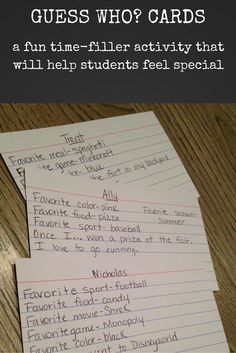 GUESS WHO? CARDS
a fun time-filler activity that
will help students feel special
Trent
Favorite meal-spaghetti
Favorite game-minecraft
color- blue
the fort in my backyard
Ally
Favorite color-pink
Favorite food- pizza
Favorite season-
summer
Favorite sport- baseball
Once I... won a prize at the fair.
I love to go running.
Nicholas
Favorite sport-football
Favorite food-candy
Favorite movie-Shrek
Favorite game- Monopoly
Favorite color-black
went to Disneyworld